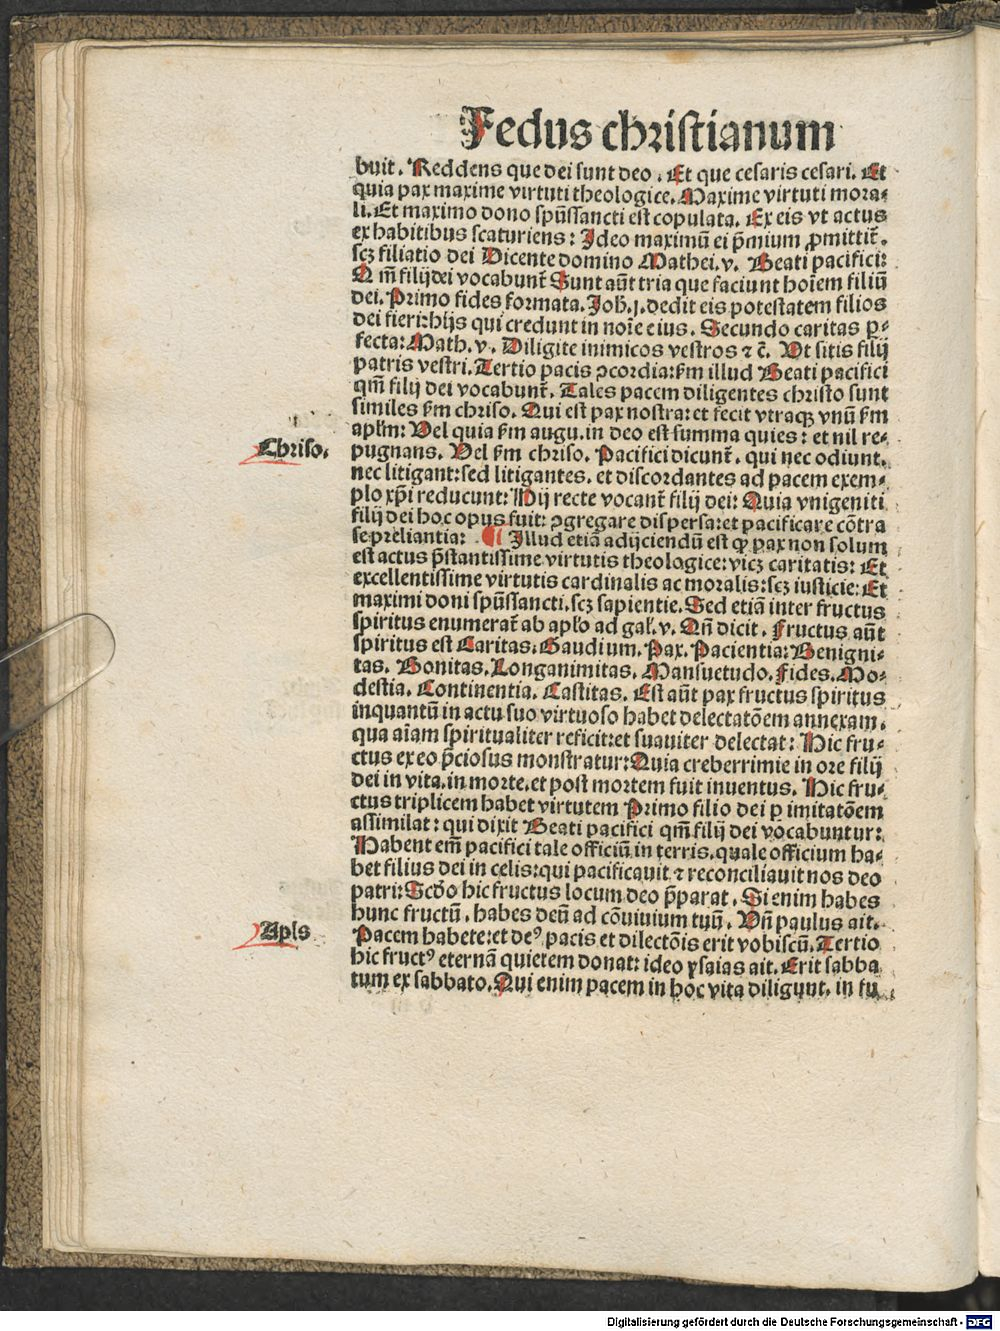 Fedus christianum
buit. Reddens que dei sunt deo. Et que cesaris cesari. Et
quia pax maxime virtuti theologice. Maxime virtuti mora⸗
li. Et maximo dono spūssancti est copulata. Ex eis vt actus
ex habitibus scaturiens: Ideo maximū ei p̄mium ꝓmittit̄.
scꝫ filiatio dei Dicente domino Mathei. v. Beati pacifici:
Qm̄ filij dei vocabunt̄ Sunt aūt tria que faciunt hoīem filiū
dei. Primo fides formata. Joh. j. dedit eis potestatem filios
dei fieri: hijs qui credunt in noīe eius. Secundo caritas ꝑ⸗
fecta: Math. v. Diligite inimicos vestros ⁊ c̄. Vt sitis filij
patris vestri. Tertio pacis ꝯcordia: ẜm illud Beati pacifici
qm̄ filij dei vocabunt̄. Tales pacem diligentes christo sunt
similes ẜm chriso. Qui est pax nostra: et fecit vtraqꝫ vnū ẜm
apl̄m: Vel quia ẜm augu. in deo est summa quies: et nil re⸗
Chriso.
pugnans. Vel ẜm chriso. Pacifici dicunt̄. qui nec odiunt.
nec litigant: sed litigantes. et discordantes ad pacem exem⸗
plo xp̄i reducunt: Hij recte vocant̄ filij dei: Quia vnigeniti
filij dei hoc opus fuit: ꝯgregare dispersa: et pacificare cōtra
se preliantia: ¶ Illud etiā adijciendū est ꝙ pax non solum
est actus p̄stantissime virtutis theologice: vicꝫ caritatis: Et
excellentissime virtutis cardinalis ac moralis: scꝫ iusticie: Et
maximi doni spūssancti. scꝫ sapientie. Sed etiā inter fructus
spiritus enumerat̄ ab apl̄o ad gal̄. v. Qn̄ dicit. Fructus aūt
spiritus est Caritas. Gaudium. Pax. Pacientia: Benigni⸗
tas. Bonitas. Longanimitas. Mansuetudo. Fides. Mo⸗
destia. Continentia. Castitas. Est aūt pax fructus spiritus
inquantū in actu suo virtuoso habet delectatōem annexam.
qua aīam spiritualiter reficit: et suauiter delectat: Hic fru⸗
ctus ex eo p̄ciosus monstratur: Quia creberrimie in ore filij
dei in vita. in morte. et post mortem fuit inuentus. Hic fru⸗
ctus triplicem habet virtutem Primo filio dei ꝑ imitatōem
assimilat: qui dixit Beati pacifici qm̄ filij dei vocabuntur:
Habent em̄ pacifici tale officiū in terris. quale officium ha⸗
bet filius dei in celis: qui pacificauit ⁊ reconciliauit nos deo
patri: Scd̄o hic fructus locum deo p̄parat. Si enim habes
hunc fructū. habes deū ad cōuiuium tuū. Vn̄ paulus ait.
Apl̄s
Pacem habete: et deꝰ pacis et dilectōis erit vobiscū. Tertio
hic fructꝰ eternā quietem donat: ideo ysaias ait. Erit sabba
tum ex sabbato. Qui enim pacem in hoc vita diligunt. in fu
Digitalisierung gefördert durch die Deutsche Forschungsgemeinschaft - DFG